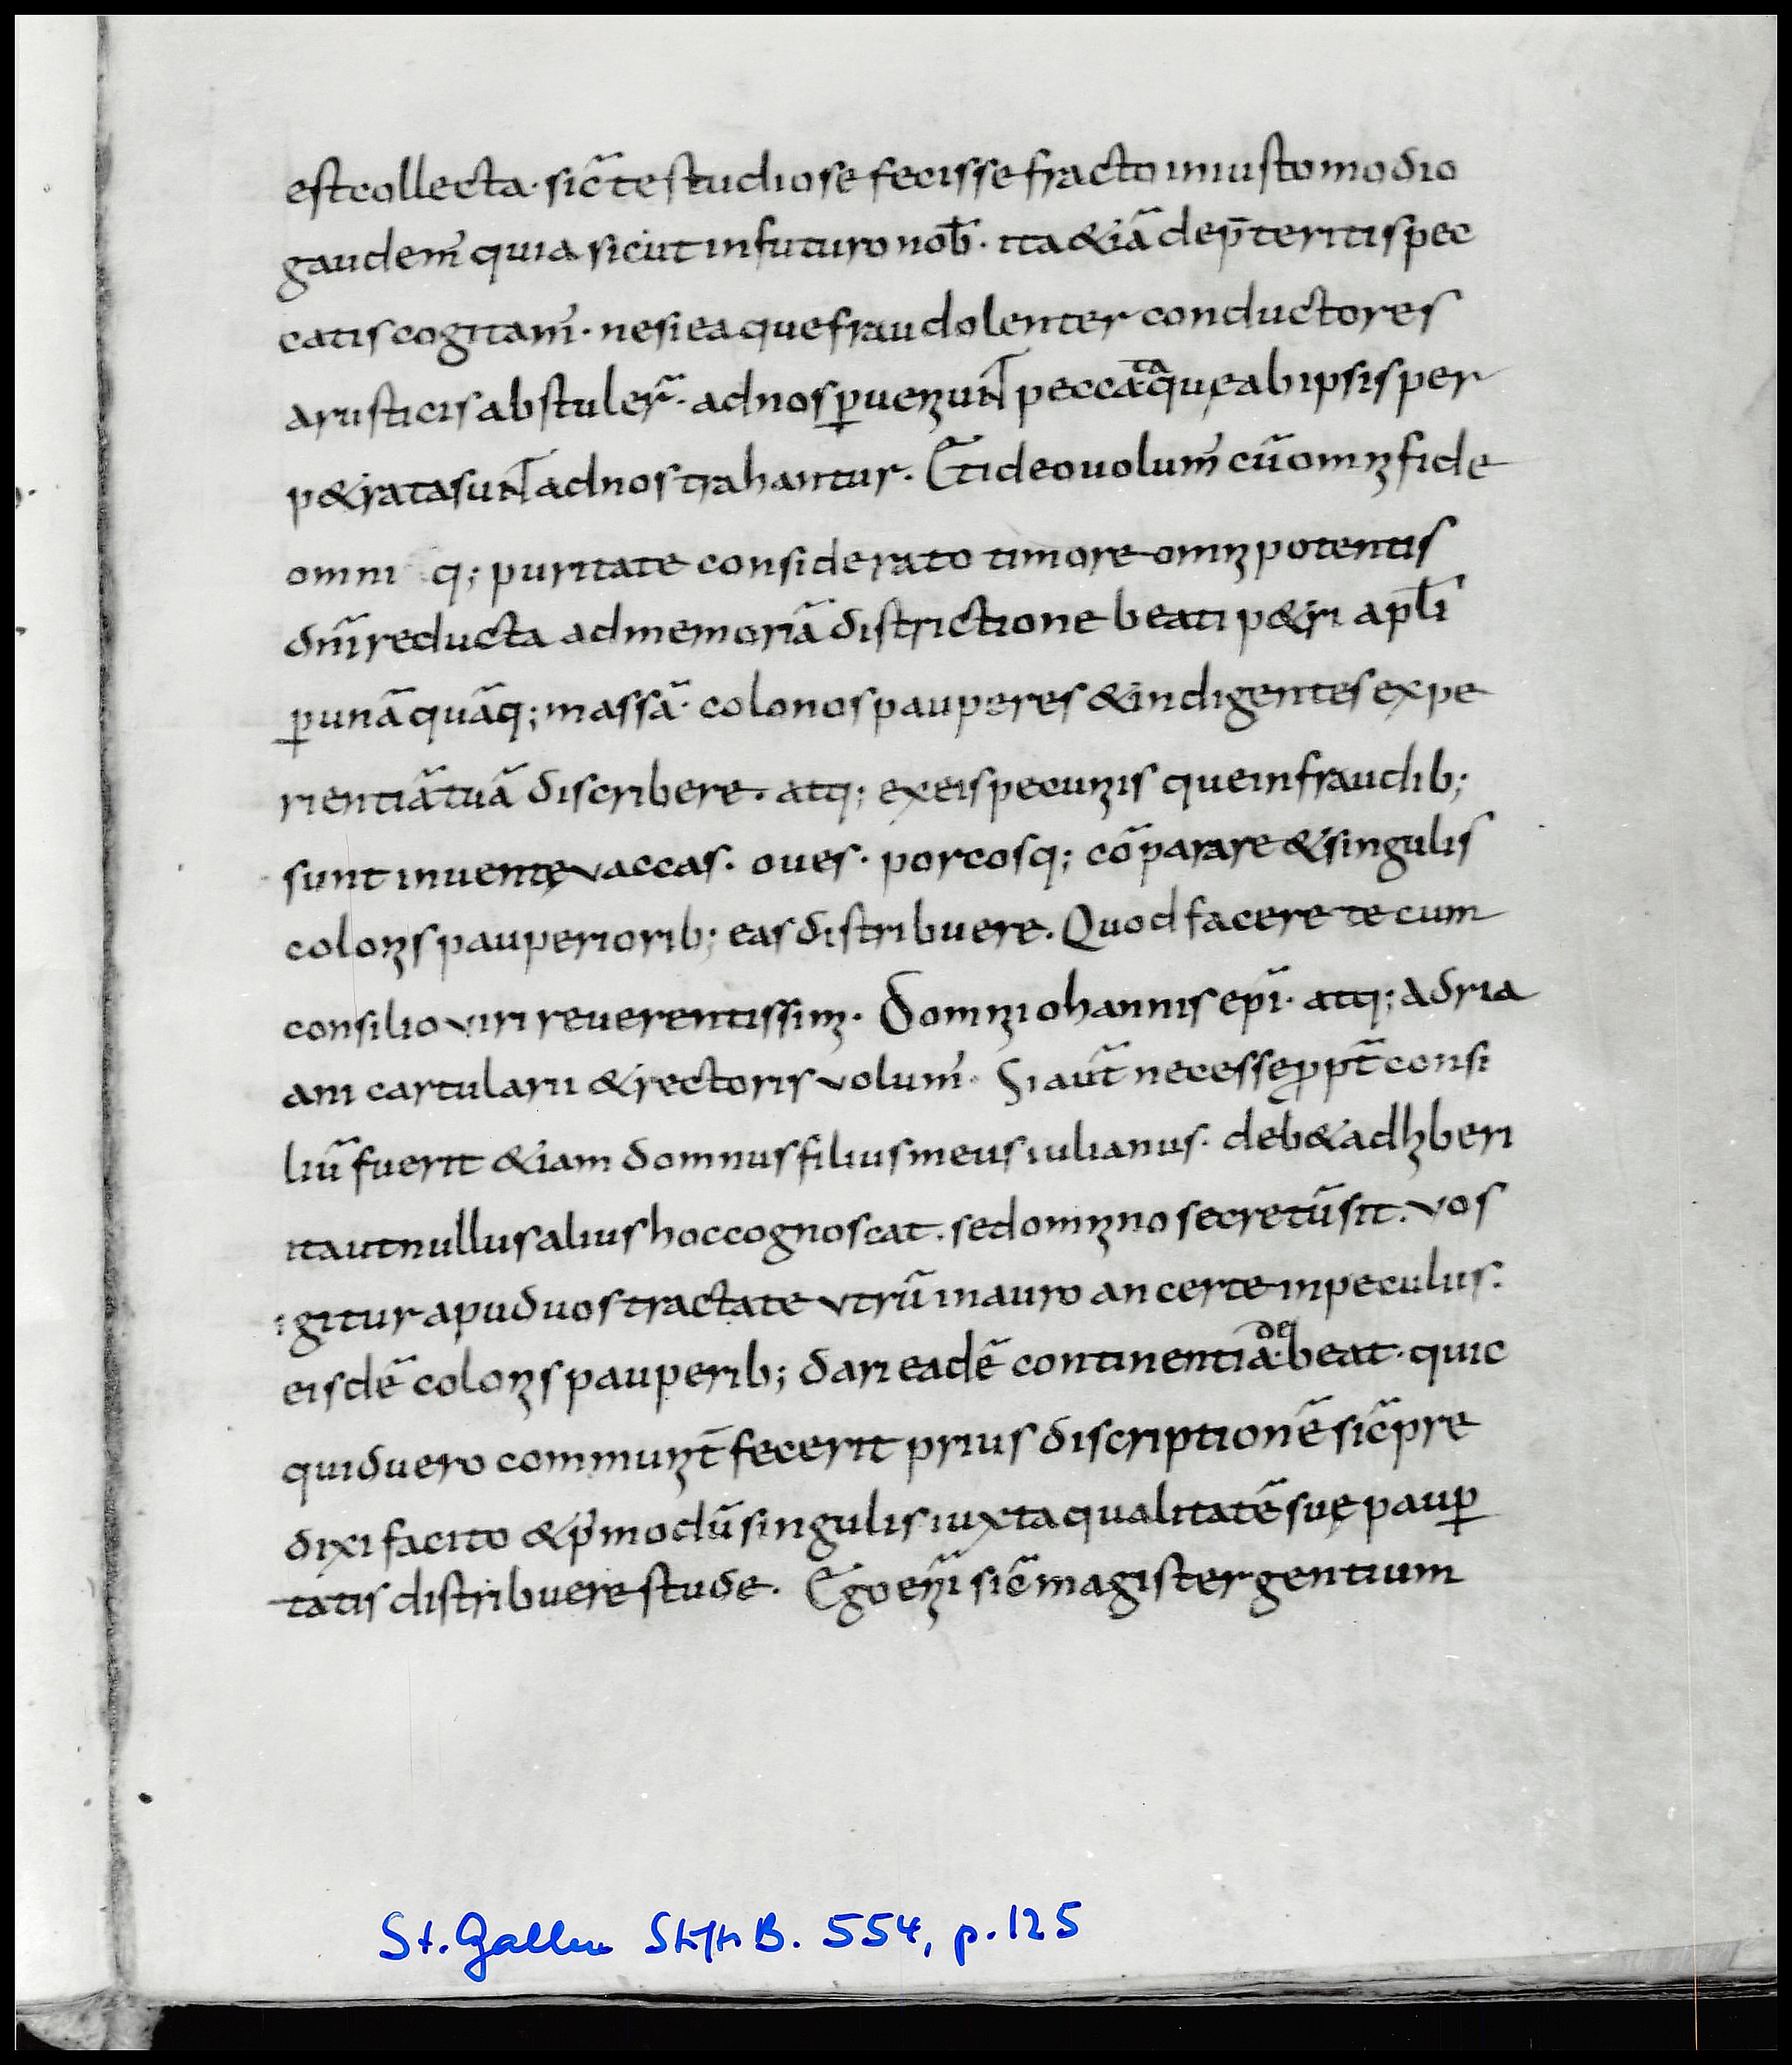 est collecta · sic̄ te studiose fecisse fracto iniusto modio
gaudem̄ quia sicut in futuro nob̄ · ita &iā de p̄teritis pec
catis cogitam̄ · ne si ea que fraudolenter conductores
a rusticis abstuler̄ · ad nos ꝑuenerunt peccata que ab ipsis per
p&rata sunt ad nos trahantur · Et ideo volum̄ cū omni fide
omni q; puritate considerato timore omnipotentis
dn̄i reducta ad memoriā districtione beati p&ri apl̄i
ꝑ unā quāq; massā · colonos pauperes & indigentes expe
rientiā tuā discribere · atq; ex eis pecuniis que in fraudib;
sunt inventę vaccas · oues · porcosq; cōparare & singulis
colonis pauperiorib; eas distribuere · Quod facere te cum
consilio viri reuerentissimi · domni iohannis epī · atq; adria
ani cartularii & rectoris volum̄ · Si aut̄ necesse ꝓpt̄ consi
liū fuerit &iam domnus filius meus iulianus · deb& adhiberi
ita ut nullus alius hoc cognoscat · sed omnino secretū sit · vos
igitur apud uos tractate vtrū in auro an certe in peculiis ·
eisdē colonis pauperib; dari eadē continentia debeat · quic
quid uero communit̄ fecerit prius discriptionē sic̄ pre
dixi facito & p̄ modū singulis iuxta qualitatē suę pauꝑ
tatis distribuere stude · Ego enī sic̄ magister gentium
St. Gallen StiftsB. 554, p. 125